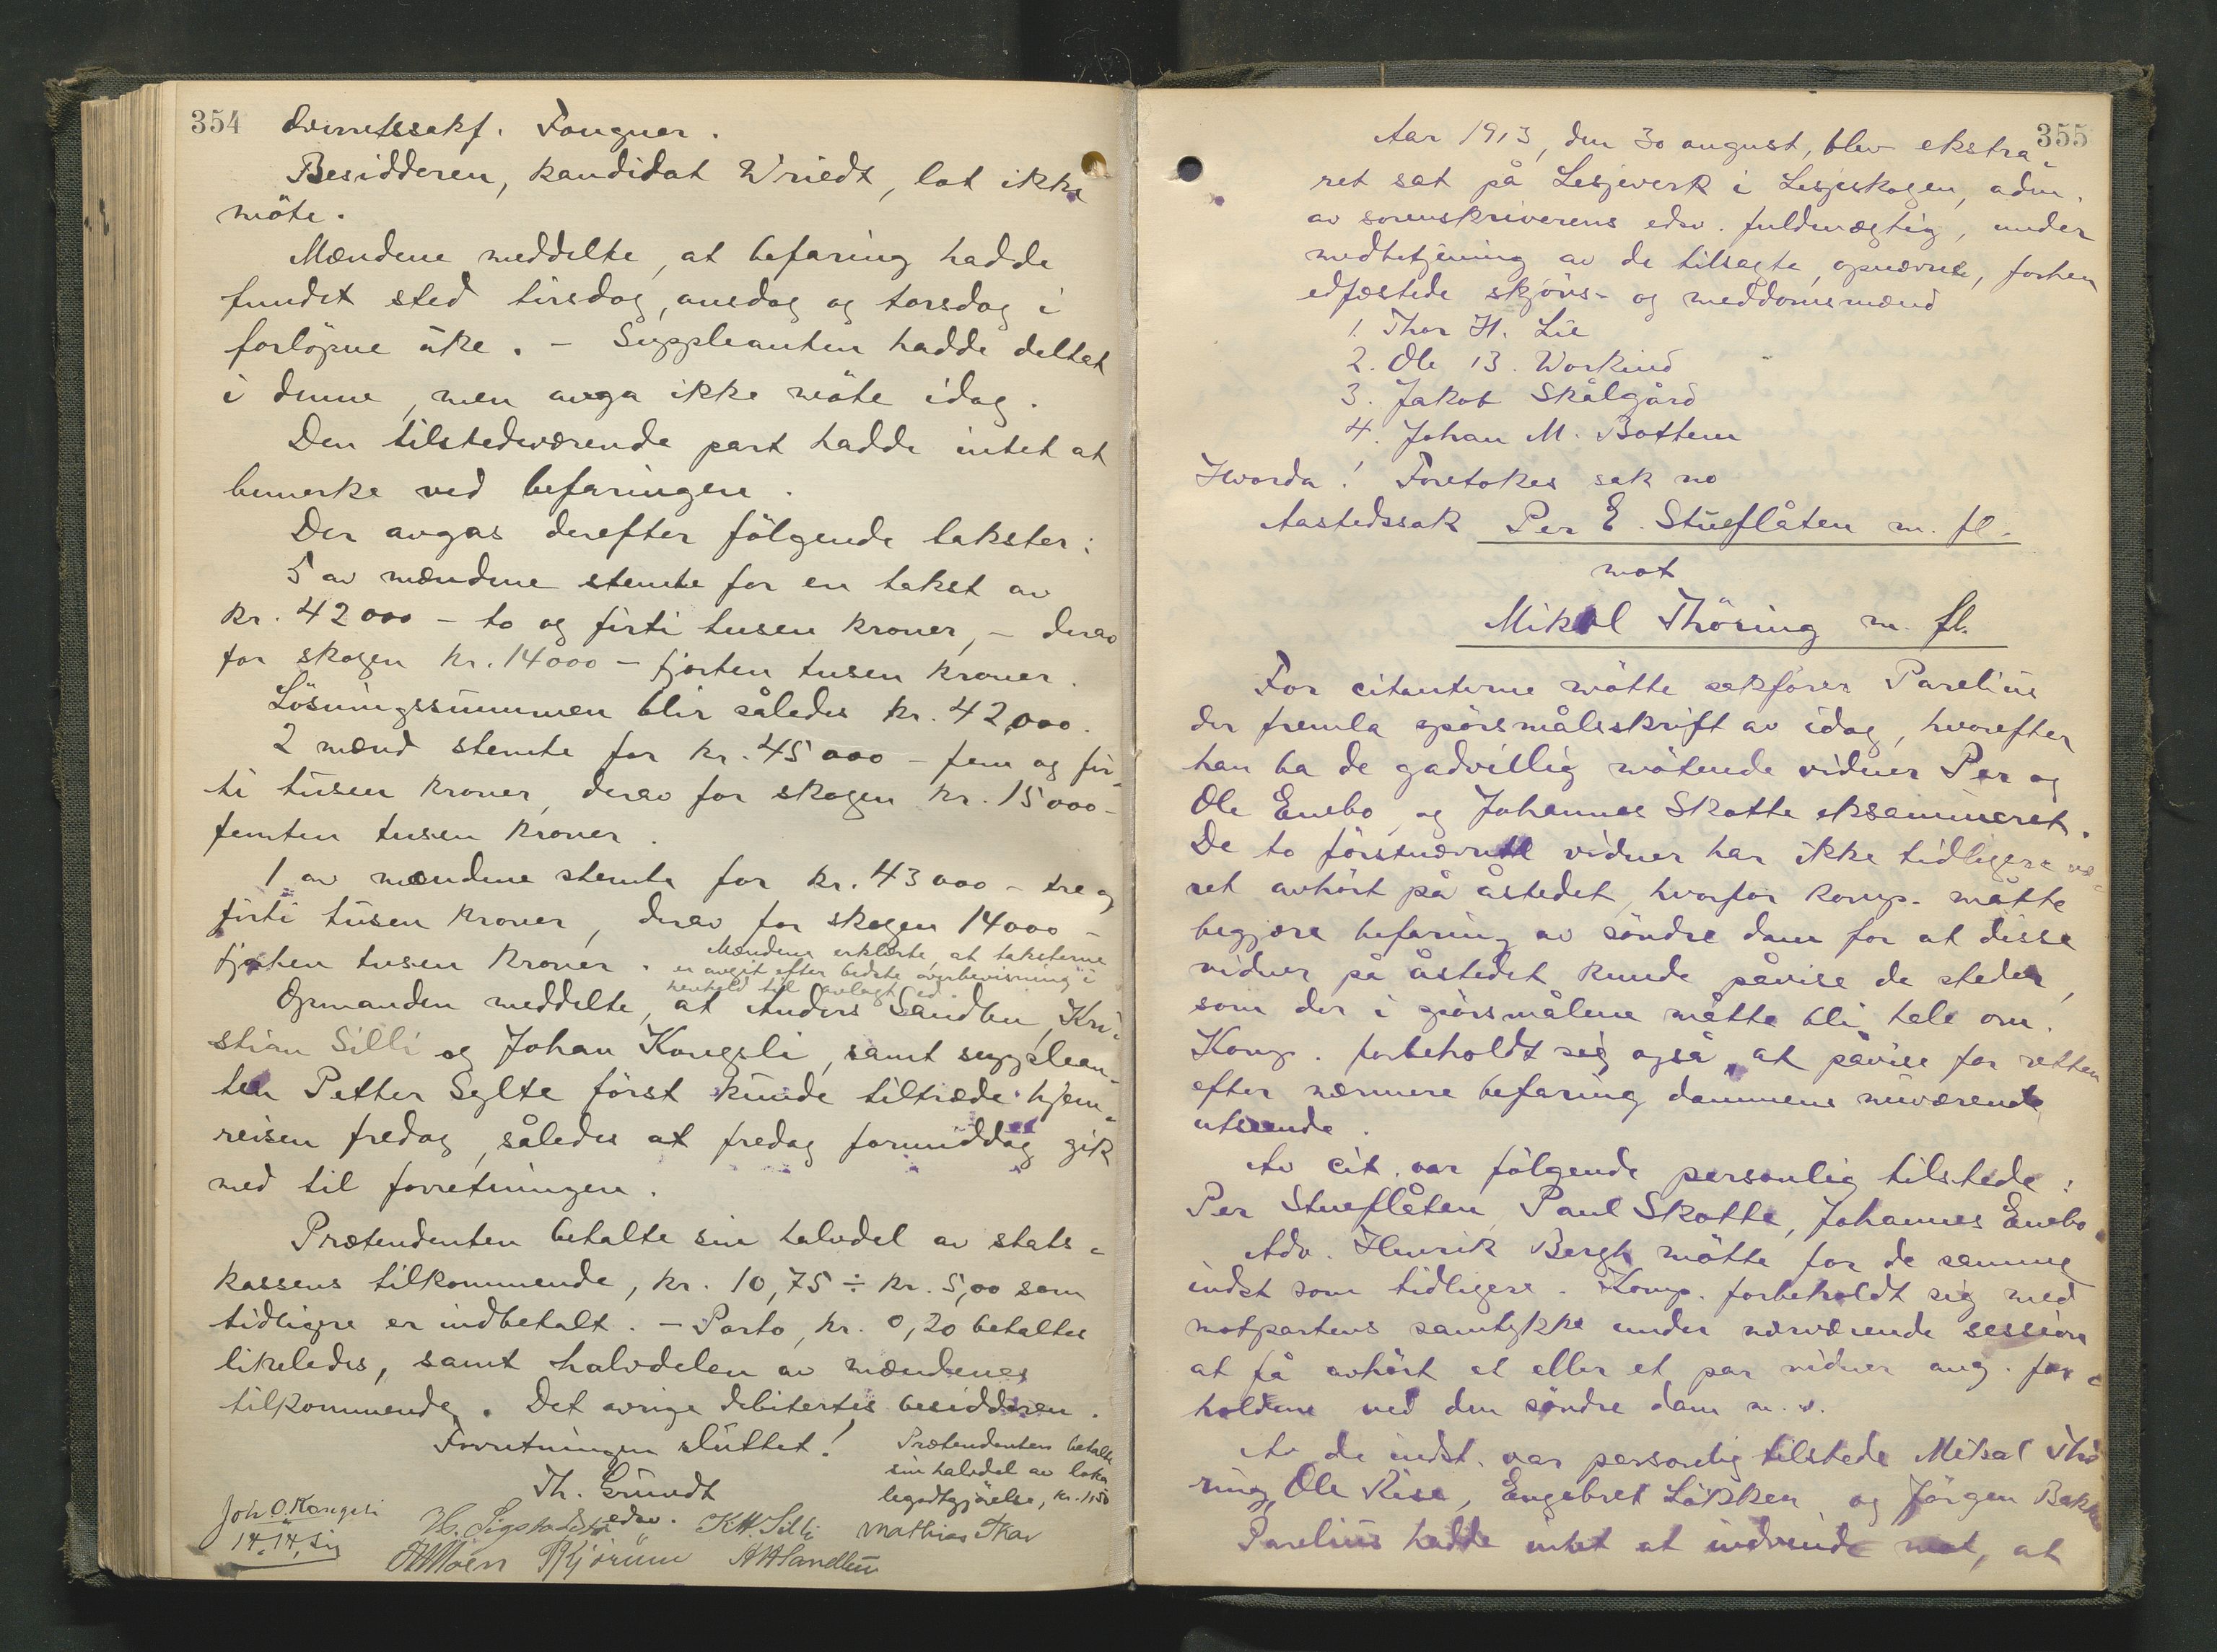 354
overretssakf. Fougner.
Besidderen, kandidat Wriedt, lot ikke
möte.
Mændene meddelte, at befaring hadde
fundet sted tirsdag, onsdag og torsdag i
forlöpne uke. – Suppleanten hadde deltat
i denne, men avga ikke möte idag.
Den tilstedeværende part hadde intet at
bemerke ved befaringen.
Der avgas derefter fölgende takster:
5 av mændene stemte for en takst av
kr. 42 000 – to og firti tusen kroner, – derav
for skogen kr. 14 000 – fjorten tusen kroner.
Lösningssummen blir således kr. 42,000.
2 mænd stemte for kr. 45 000 – fem og fir-
ti tusen kroner, derav for skogen kr. 15 000 –
femten tusen kroner.
1 av mændene stemte for kr. 43 000 – tre og
firti tusen kroner, derav for skogen 14 000 –
fjorten tusen kroner. Mændene erklærte, at taksterne
er avgit efter bedste overbevisning i
henhold til avlagt ed.
Opmanden meddelte, at Anders Sandbu, Kri-
stian Silli og Johan Kongsli, samt supplean-
ten Petter Sylte först kunde tiltræde hjem-
reisen fredag, således at fredag formiddag gik
med til forretningen.
Prætendenten betalte sin halvdel av stats-
kassens tilkommende, kr. 10,75 ÷ kr. 5,00 som
tidligere er indbetalt. – Porto, kr. 0,20 betaltes
likeledes, samt halvdelen av mændenes
tilkommende. Det övrige debitertes besidderen.
Forretningen sluttet!
Prætendenten betalte
sin halvdel av loka
legodtgjörelse, kr. 1,50
Th. Grundt
edsv.
Joh O. Kongsli
K H. Silli Mathias Skar
355
Aar 1913, den 30 august, blev ekstra-
ret sat på Lesjeverk i Lesjeskogen, adm.
av sorenskriverens edsv. fuldmægtig, under
medbetjening av de tilsagte, opnævnte, forhen
edfæstede skjöns- og meddomsmænd
1. Thor H. Lie
2. Ole B. Workind
3. Jakob Skålgård
4. Johan M. Bottem
Hvorda! Foretokes sak no
Aastedssak Per E. Stueflåten m. fl.
mot
Mikal Thöring m. fl.
For citanterne mötte sakförer Parelius
der fremla spörsmålsskrift av idag, hvorefter
han ba de godvillig mötende vidner Per og
Ole Enebo, og Johannes Skotte eksamineret.
De to förstnævnte vidner har ikke tidligere væ-
ret avhört på åstedet, hvorfor komp. måtte
begjære befaring av söndre dam for at disse
vidner på åstedet kunde påvise de steder,
som der i spörsmålene måtte bli tale om.
Komp. forbeholdt sig også, at påvise for retten
efter nærmere befaring dammens nuværende
utseende.
Av cit. var fölgende personlig tilstede:
Per Stueflåten, Paul Skotte, Johannes Enebo.
Adv. Henrik Bergh mötte for de samme
indst som tidligere. Komp. forbeholdt sig med
motpartens samtykke under nærværende session
at få avhört et eller et par vidner ang. for-
holdene ved den söndre dam m. v.
Av de indst. var personlig tilstede Mikal Thö
ring, Ole Rise, Engebret Lökken og Jörgen Bakke
Parelius hadde intet at indvende mot, at